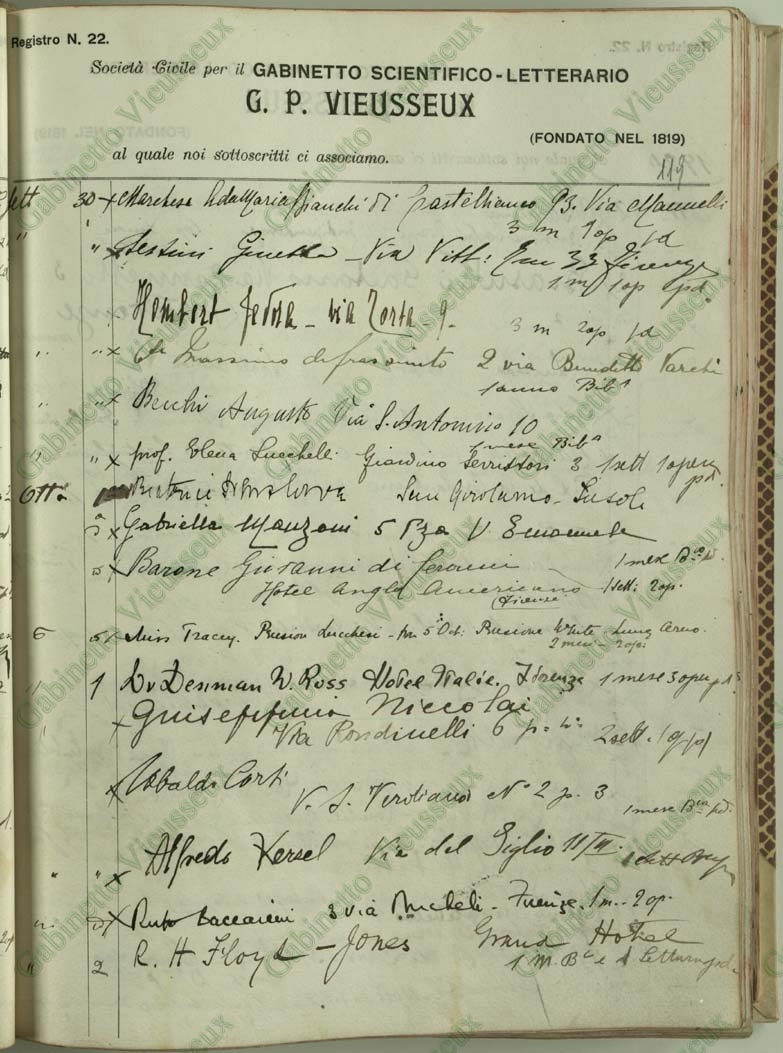 Registro N. 22.
Società Civile per il GABINETTO SCIENTIFICO-LETTERARIO
G. P. VIEUSSEUX
(FONDATO NEL 1819)
al quale noi sottoscritti ci associamo.
119
Sett 30 x Marchesa Ada Maria Bianchi di 93. Via Mannelli
3 m 1 op pd
" " x Ginetta - Via Vitt: Em 33 Firenze
1 m 1 op pd.
Humbert - via Zorta - 9.
3 m 2 op pd
" " x Massimo di frassineto 2 via Benedetto Varchi
1 anno Bibª
" " x Becchi Augusto Via S. Antonino 10
1 mese Bibª
" " x prof. Elena Lucchelli Giardino Serristori 3 1 sett 1 opera pd.
Ottre San Girolamo - Fiesole
x Gabriella Manzoni 5 Pza V Emanuele
x Barone Giovanni di 1 mese Bca pd.
Hotel Anglo Americano 1 sett: 2 op.
(Firenze
6 Miss Tracey. Pension Lucchesi - 5 Oct: Pensione White Lung Arno.
2 mesi - 2 op:
" 1 Dr Denman W. Ross Hotel Italie. Firenze 1 mese 3 opere pd
x Guiseppina Niccolai
Via Rondinelli 6 p. 2 sett. 1 op pd
x Ubaldo Corti
V. S. Verdiana No 2 p. 3
1 mese Bca pd.
" " x Alfredo Kersel Via del Giglio 11/II.
x Baccarini 3 via Micheli - Firenze. 1 m. - 2 op.
" 2 R. H Floyd - Jones Grand Hotel
1 m. Bca e 1 Lettura pd.
Gabinetto Vieusseux